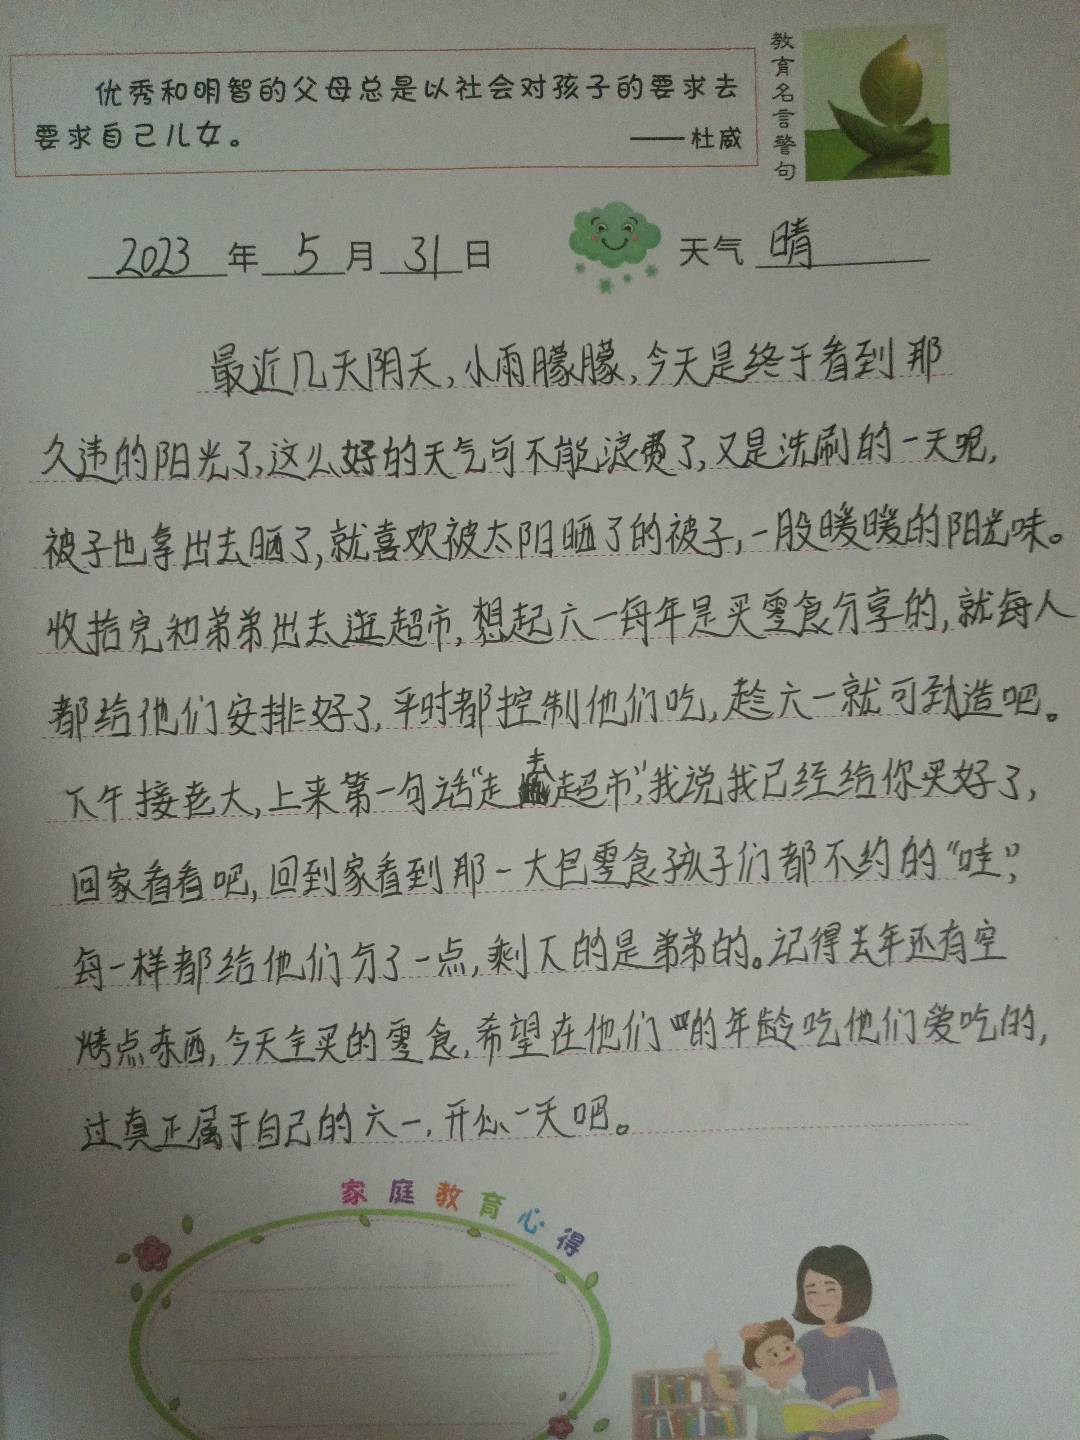 优秀和明智的父母总是以社会对孩子的要求去
要求自己儿女。
——杜威
教育名言警句
2023年5月31日
天气 晴
最近几天阴天,小雨朦朦,今天是终于看到那
久违的阳光了,这么好的天气可不能浪费了,又是洗刷的一天呢,
被子也拿出去晒了,就喜欢被太阳晒了的被子,一股暖暖的阳光味。
收拾完和弟弟出去逛超市,想起六一每年是买零食分享的,就每人
都给他们安排好了,平时都控制他们吃,趁六一就可劲造吧。
下午接老大,上来第一句话“走去超市”,我说我已经给你买好了,
回家看看吧,回到家看到那一大包零食孩子们都不约的“哇”,
每一样都给他们分了一点,剩下的是弟弟的。记得去年还有空
烤点东西,今天全买的零食,希望在他们的年龄吃他们爱吃的,
过真正属于自己的六一,开心一天吧。
家庭教育心得